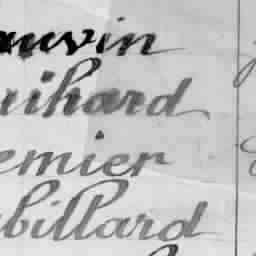 auvin
uihard
emier
billard